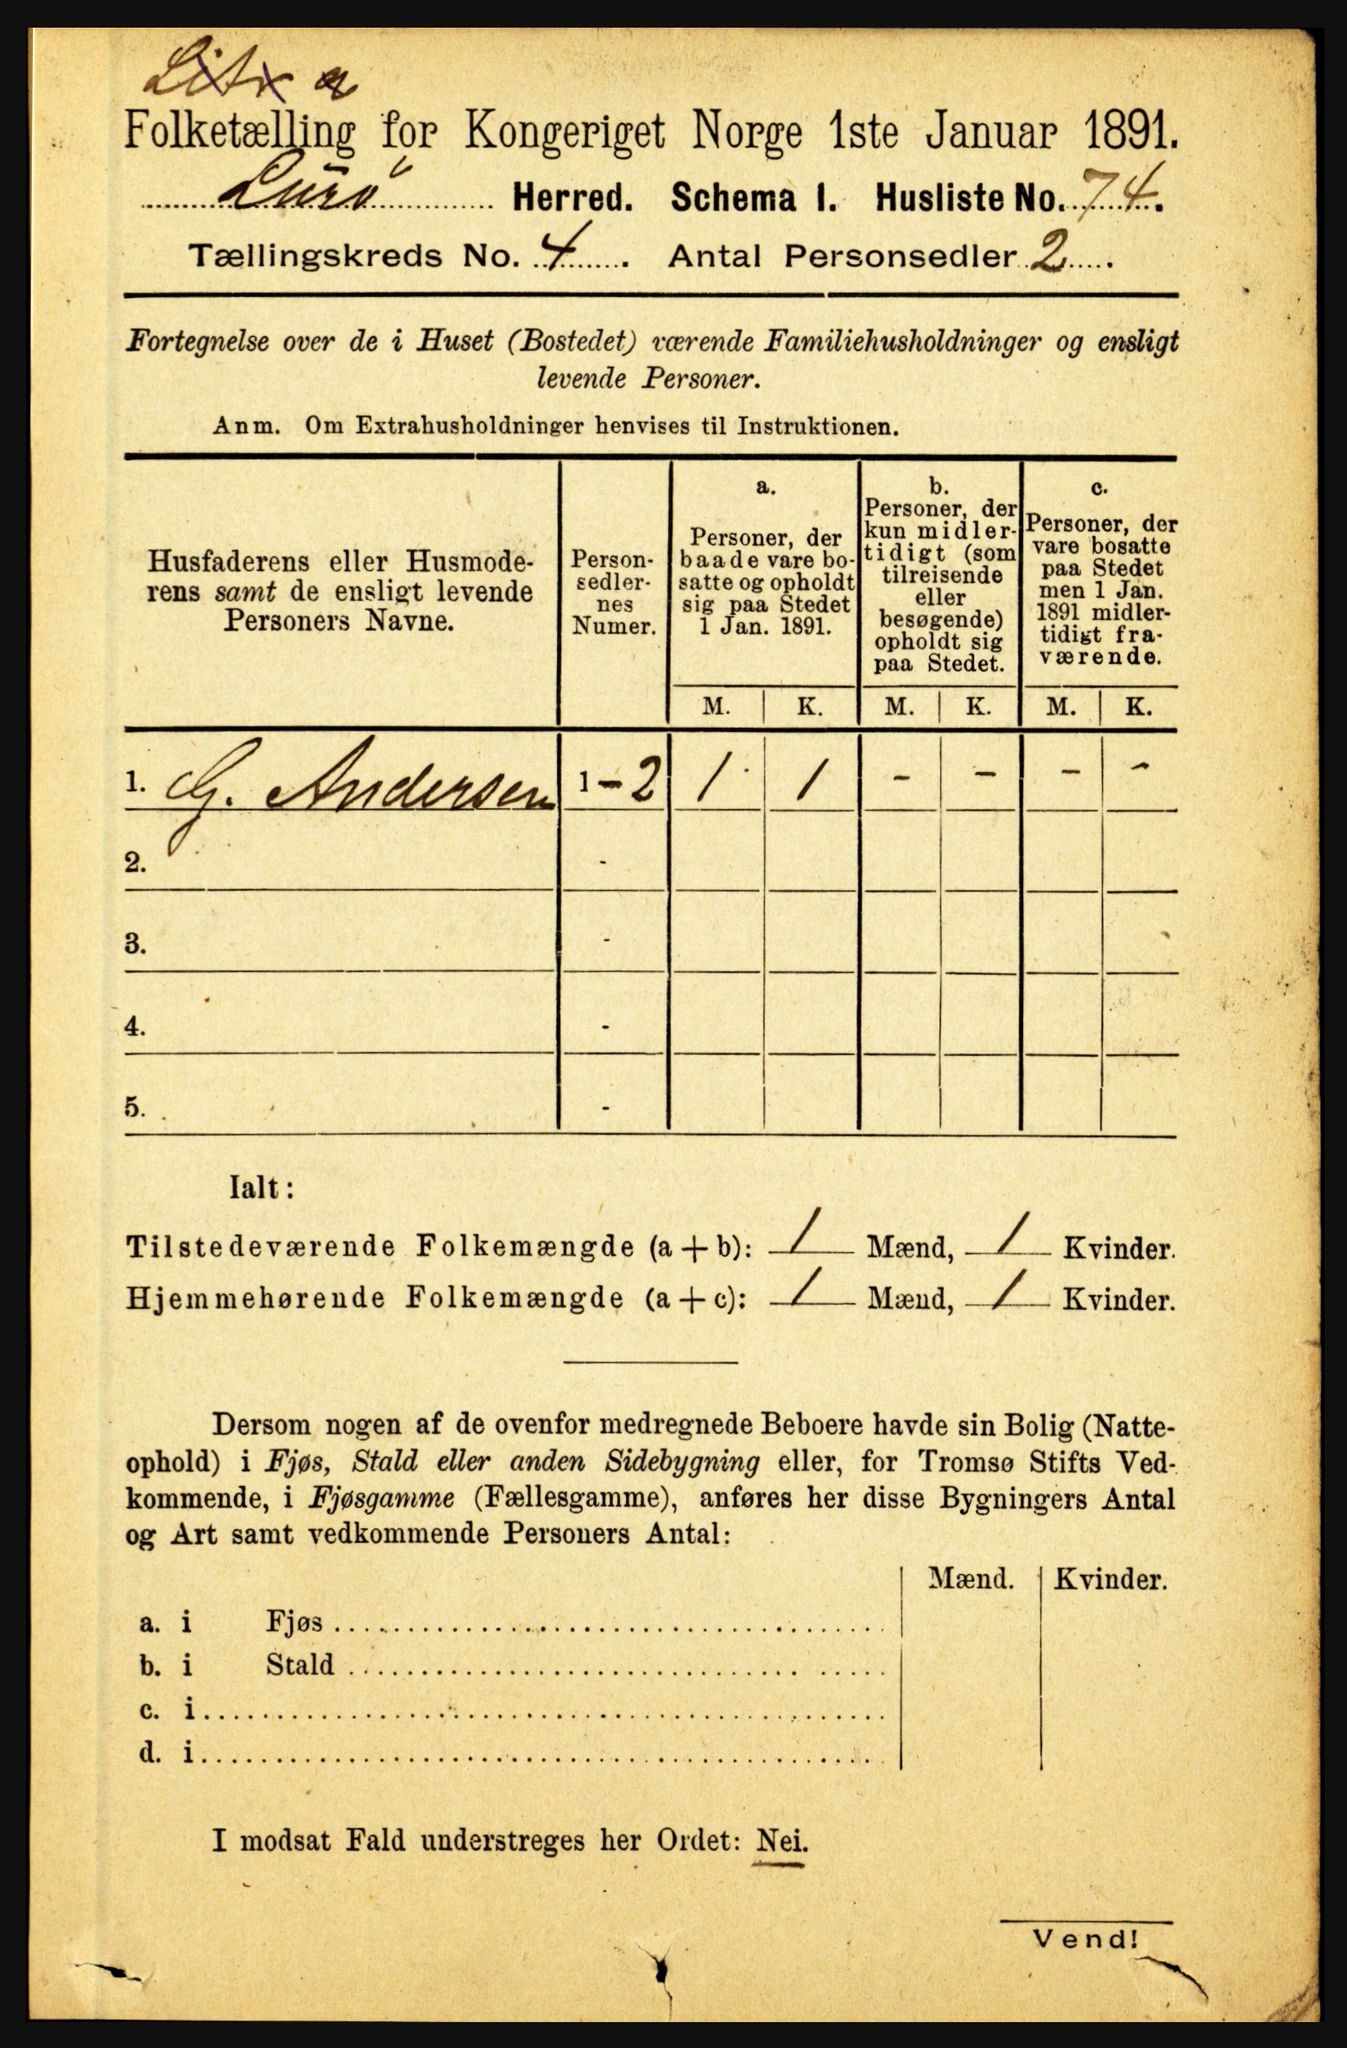 Litr a
Folketælling for Kongeriget Norge 1ste Januar 1891.
Lurø Herred. Schema 1. Husliste No. 74.
Tællingskreds No. 4. Antal Personsedler 2.
Fortegnelse over de i Huset (Bostedet) værende Familiehusholdninger og ensligt
levende Personer.
Anm. Om Extrahusholdninger henvises til Instruktionen.
Husfaderens eller Husmode-
rens samt de ensligt levende
Personers Navne.
Person-
sedler-
nes
Numer.
a.
Personer, der
baade vare bo-
satte og opholdt
sig paa Stedet
1 Jan. 1891.
b.
Personer, der
kun midler-
tidigt (som
tilreisende
eller
besøgende)
opholdt sig
paa Stedet.
c.
Personer, der
vare bosatte
paa Stedet
men 1 Jan.
1891 midler-
tidigt fra-
værende.
M. K. M. K. M. K.
1. G. Andersen 1 - 2 1 1 - - - -
2. -
3. -
4. -
5. -
Ialt:
Tilstedeværende Folkemængde (a + b): 1 Mænd, 1 Kvinder.
Hjemmehørende Folkemængde (a + c): 1 Mænd, 1 Kvinder.
Dersom nogen af de ovenfor medregnede Beboere havde sin Bolig (Natte-
ophold) i Fjøs, Stald eller anden Sidebygning eller, for Tromsø Stifts Ved-
kommende, i Fjøsgamme (Fællesgamme), anføres her disse Bygningers Antal
og Art samt vedkommende Personers Antal:
Mænd. Kvinder.
a. i Fjøs
b. i Stald
c. i
d. i
I modsat Fald understreges her Ordet: Nei.
Vend!